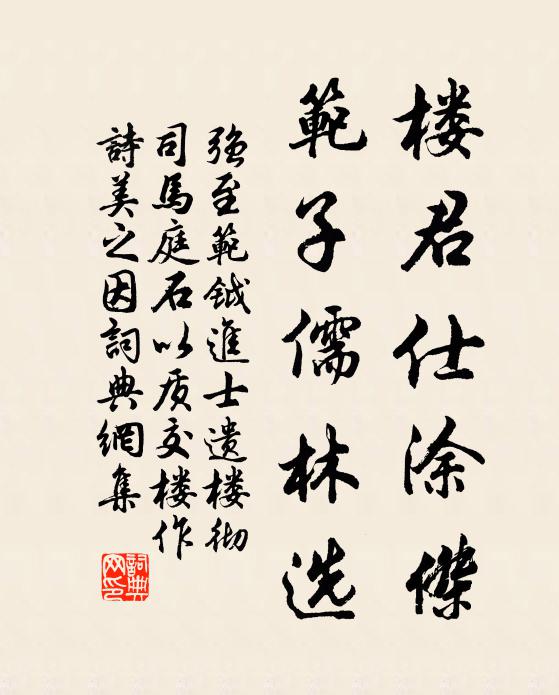 楼君仕涂傑
範子儒林选
強至範鉞進士遺楼彻
司馬庭石以质交楼作
詩美之因詞典網集
詞典网印